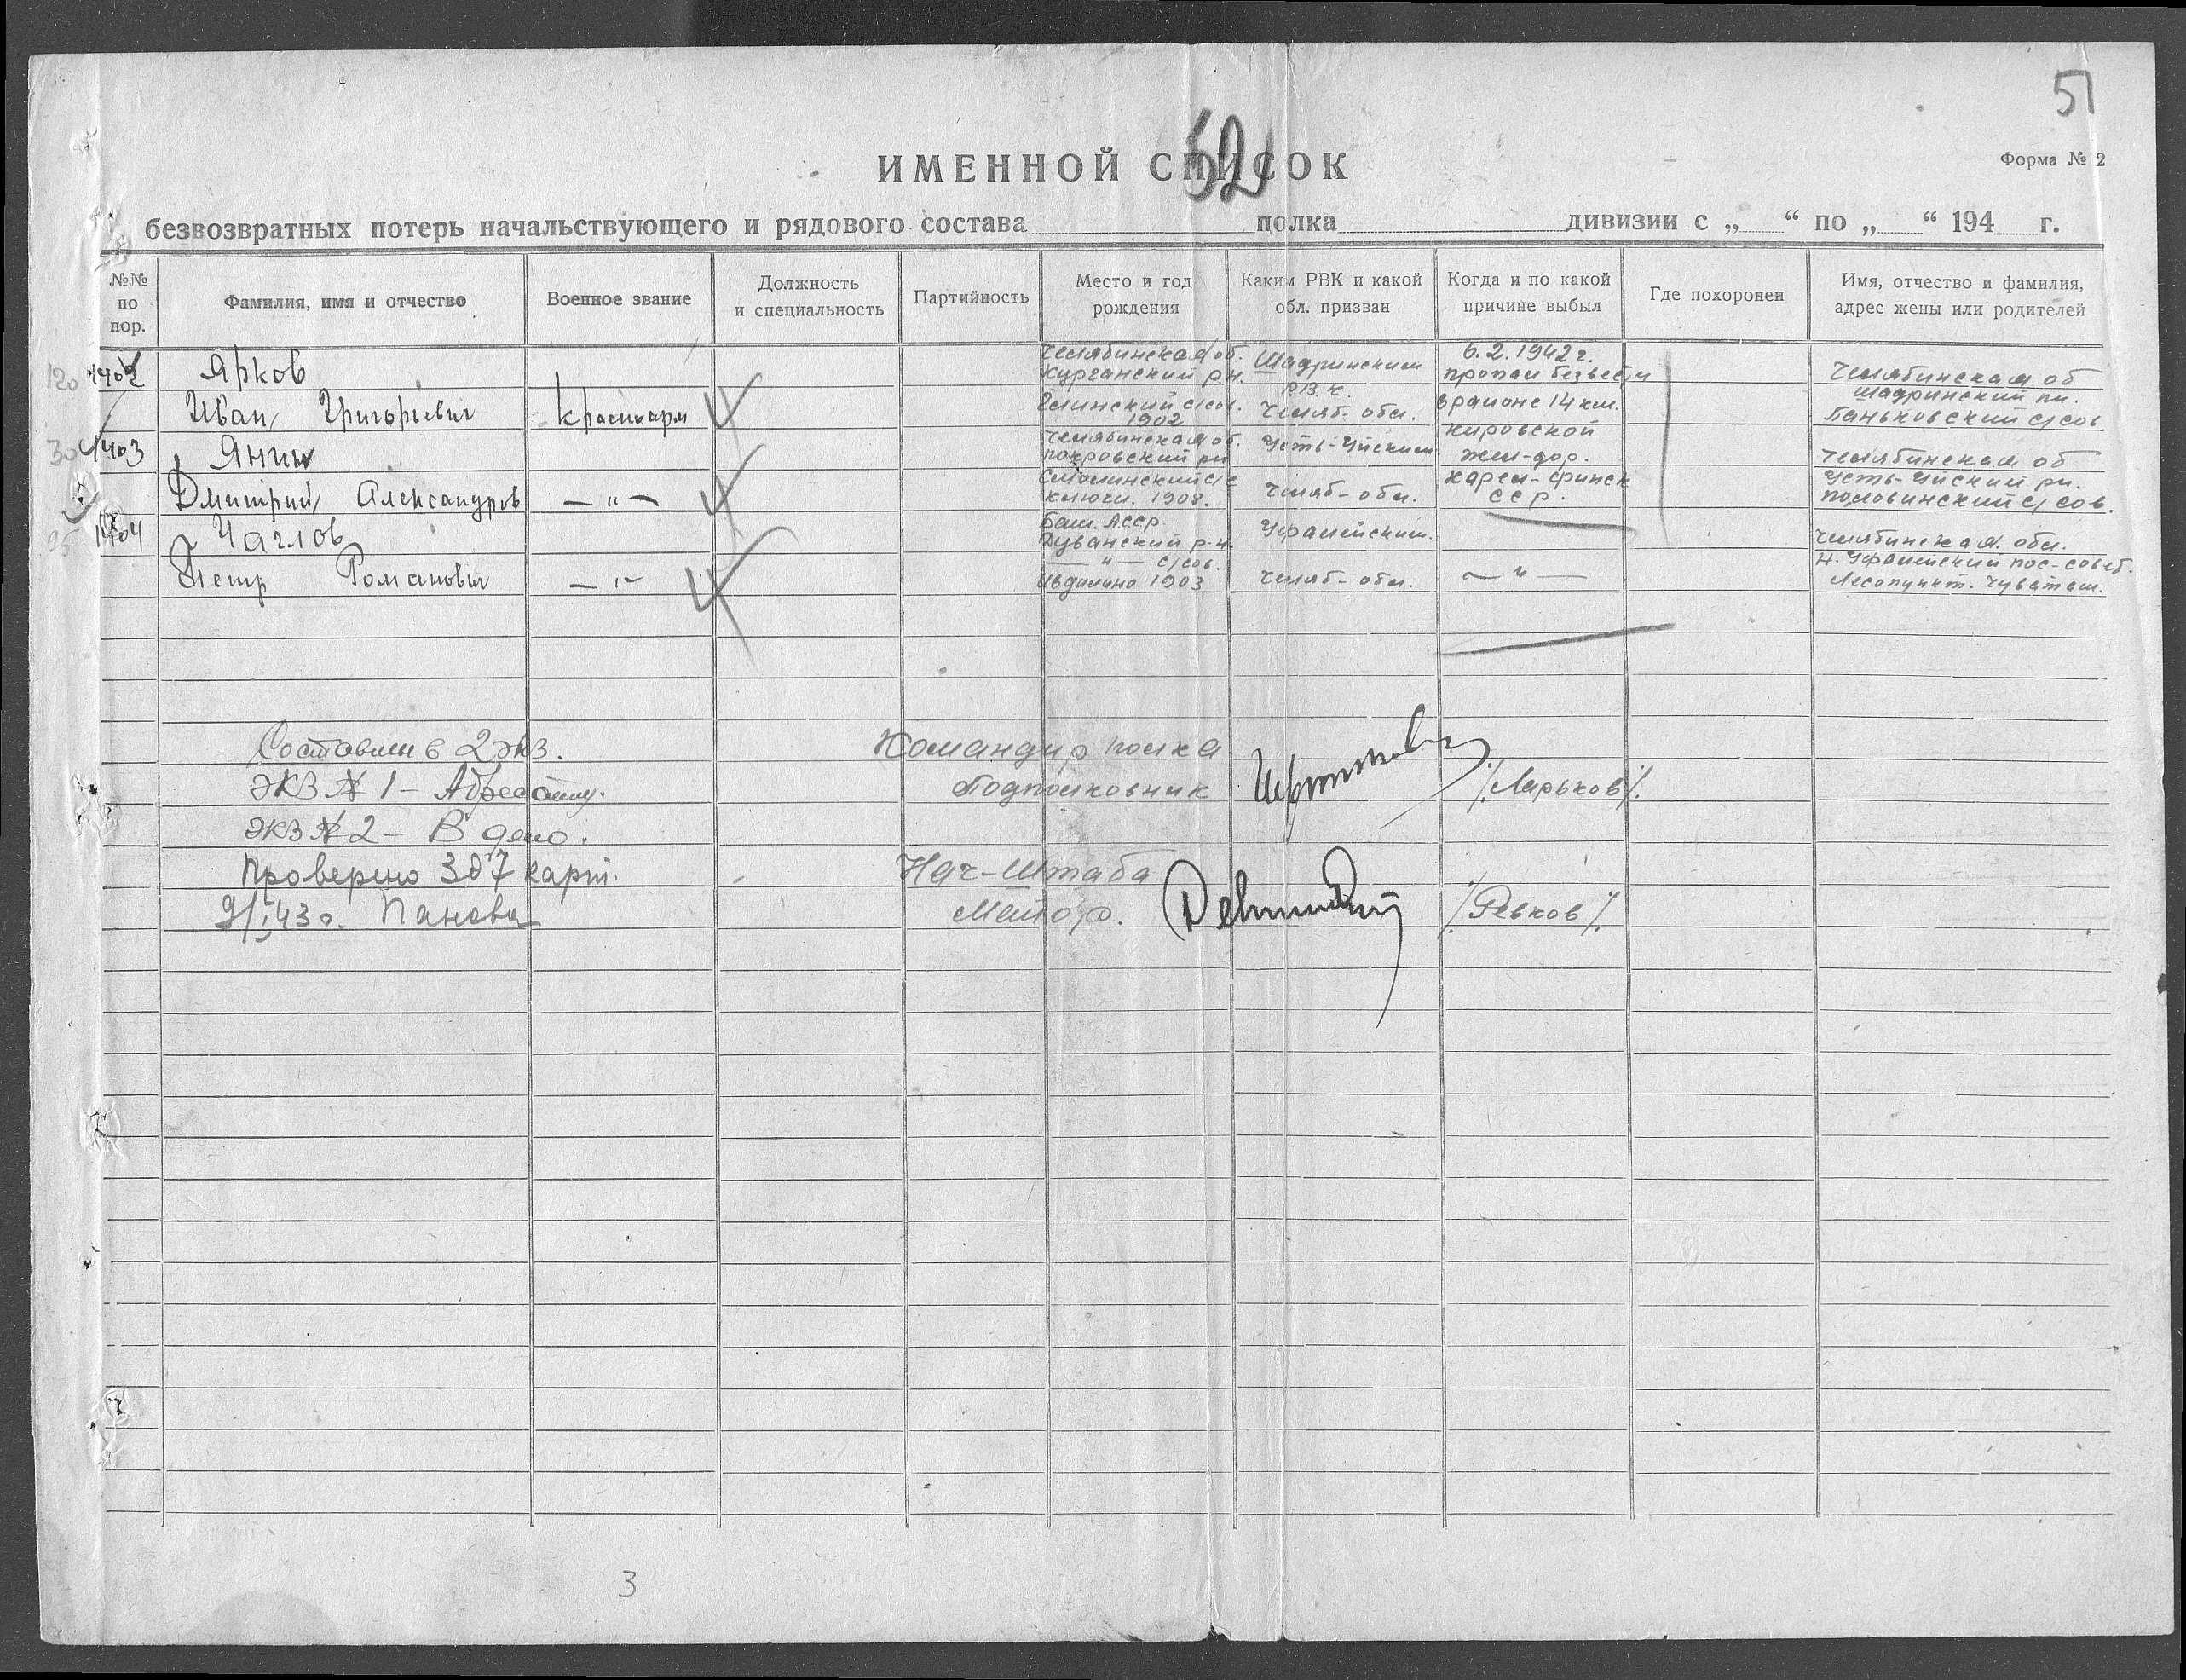 51
52
ИМЕННОЙ СПИСОК
Форма № 2
безвозвратных потерь начальствующего и рядового состава полка дивизии с „ “ по „ “ 194 г.
№№ по пор.
Фамилия, имя и отчество
Военное звание
Должность и специальность
Партийность
Место и год рождения
Каким РВК и какой обл. призван
Когда и по какой причине выбыл
Где похоронен
Имя, отчество и фамилия, адрес жены или родителей
120 1402
Ярков
Иван Григорьевич
Красноарм
Челябинская об.
Курганский р-н.
Глинский с/сов.
1902
Шадринским
Р.В.К.
Челяб-обл.
6.2.1942 г.
пропал безвести
в районе 14 км.
кировской
жел-дор.
карел-финск
ССР.
Челябинская об
Шадринский рн.
Баньковский с/сов
30 1403
Янин
Дмитрий Александров
— " —
Челябинская об.
покровский рн
Смолинский с/с
ключи. 1908.
Усть-Уйским
Челяб-обл.
Челябинская об
Усть-Уйский рн.
половинский с/сов.
1404
Чаглов
Петр Романович
— " —
Баш. АССР.
Дуванский р-н.
— " — с/сов.
1903
Уфалейским.
Челяб-обл.
— " —
Челябинская. обл.
Н. Уфалейский пос-совет.
Лесопункт.
Составлен в 2 экз.
ЭКЗ № 1 – Адресату.
ЭКЗ № 2 – В дело.
Проверено 307 карт.
Панова
Командир полка
Подполковник
/Ларьков/.
Нач-Штаба
Майор.
/Ревков/.
3